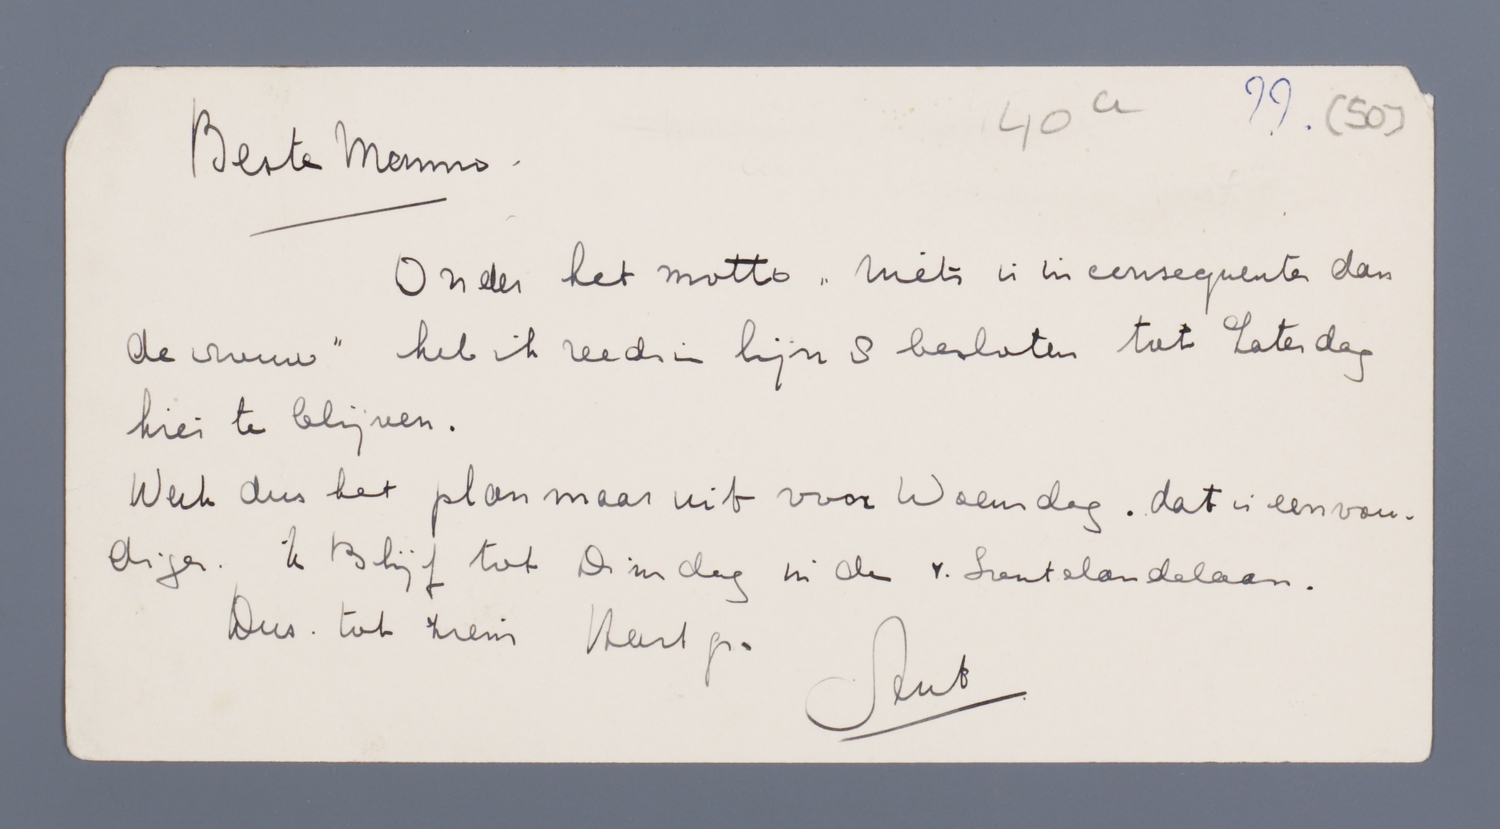 40 a 99. (50)
Beste Menno.
Onder het motto „niets is inconsequenter dan
de vrouw" heb ik reeds in lijn 8 besloten tot Zaterdag
hier te blijven.
Werk dus het plan maar uit voor Woensdag. dat is eenvou-
diger. ik Blijf tot Dinsdag in de v.
Dus. tot ziens Hart gr.